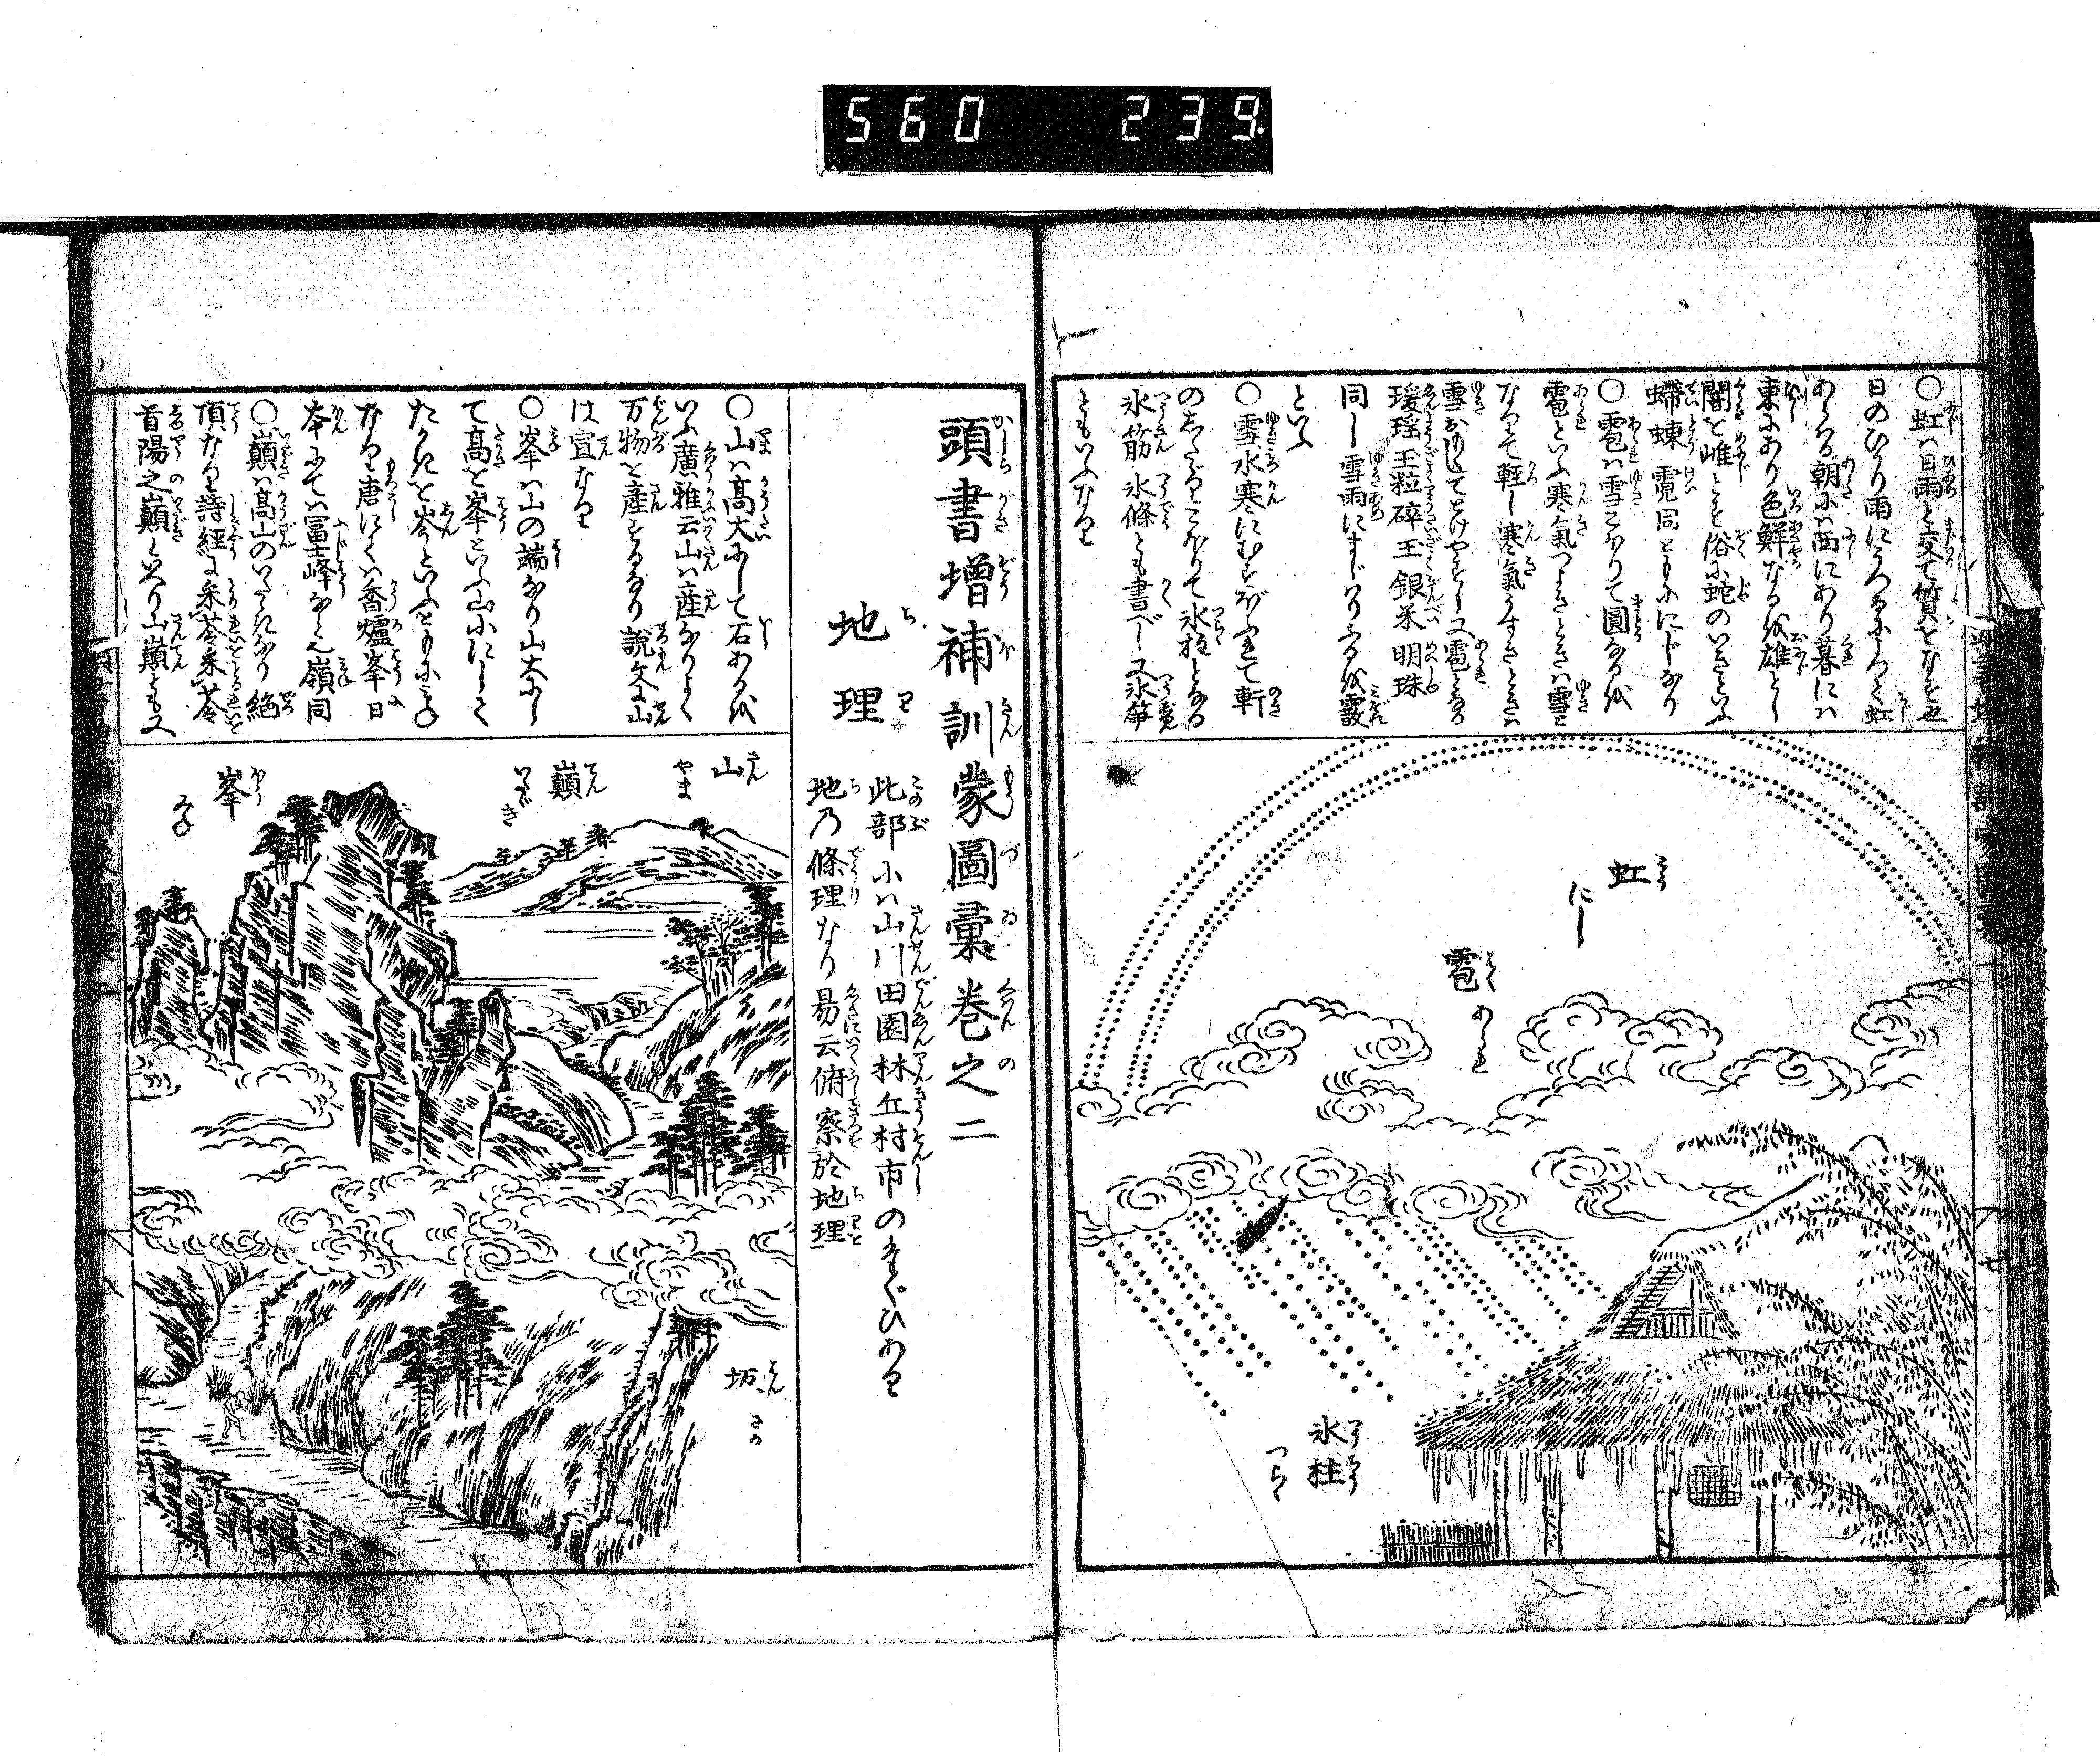 560 239.
○虹ハ日雨と交て質をなす也
日のひかり雨にうつるなるべく虹
あらハる朝にハ西にあり暮にハ
東にあり色鮮なるを雄とし
闇を雌とす俗に蛇のいきといふ
蝃蝀霓同ともににじなり
○雹ハ雪こほりて圓なるを
雹といふ寒氣つよきときハ雪と
なりて軽し寒氣うすきときハ
雪おもくしてとけやすし又雹となる
瑗瑶玉粒碎玉銀米明珠
同し雪雨にまじハりふるを霰
といふ
○雪水寒にむすぼふれて軒
のしたゞりこほりて氷柱となる
氷筋氷條とも書べし又氷笋
ともいふなり
虹 こう にじ
雹 はく あられ
氷柱 つらゝ
頭書增補訓蒙圖彙卷之二
地理
此部にハ山川田園林丘村市のたぐひあり
地乃條理なり易云俯察於地理
○山ハ高大にして石あるを
いふ廣雅云山ハ産なりよく
万物を産するなり說文に山
は宣なり
○峯ハ山の端なり山大にし
て高を峯といふ山小にして
たかきを岑といふともにみね
なり唐にてハ香爐峯日
本にてハ冨士峰なと也嶺同
○巔ハ高山のいたゞきなり絶
頂なり詩經に采苓采苓
首陽之巔といへり山巔とも又
山 さん やま
巔 てん いたゞき
峯 ほう みね
坂 はん さか